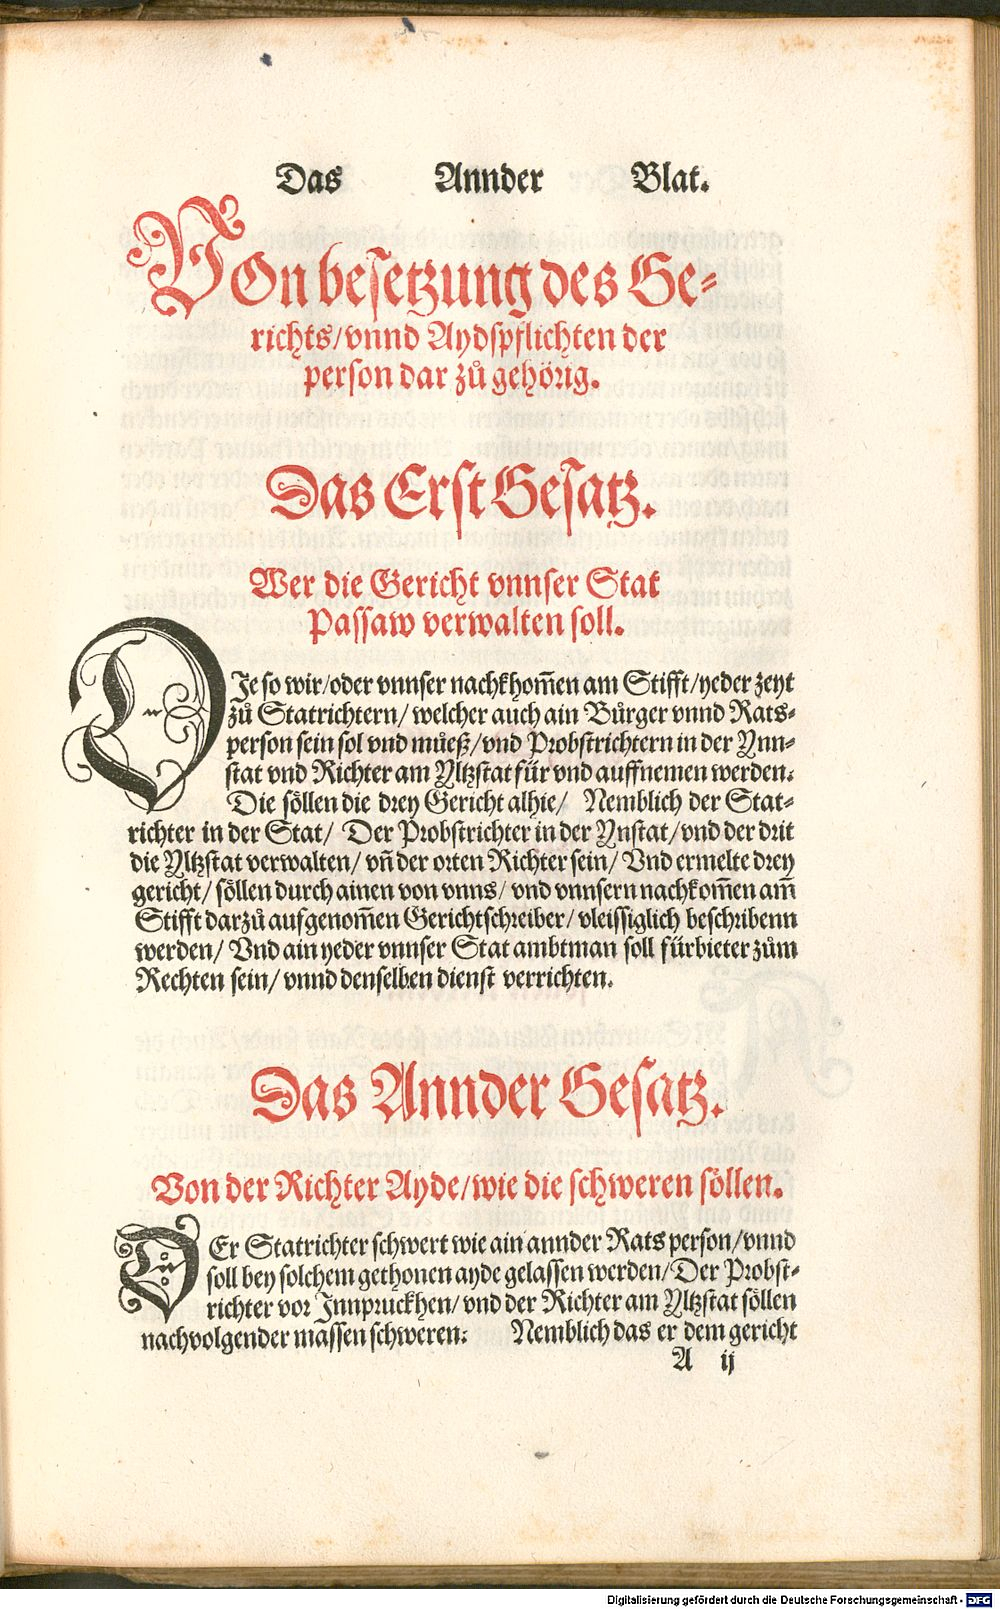 Das Annder Blat.
VOn besetzung des Ge-
richts/ vnnd Aydspflichten der
person dar zů gehörig.
Das Erst Gesatz.
Wer die Gericht vnnser Stat
Passaw verwalten soll.
DJe so wir/ oder vnnser nachkhom̄en am Stifft/ yeder zeyt
zů Statrichtern/ welcher auch ain Bůrger vnnd Rats-
person sein sol vnd můeß/ vnd Probstrichtern in der Ynn-
stat vnd Richter am Yltzstat für vnd auffnemen werden.
Die söllen die drey Gericht alhie/ Nemblich der Stat-
richter in der Stat/ Der Probstrichter in der Ynstat/ vnd der drit
die Yltzstat verwalten/ vn̄ der orten Richter sein/ Vnd ermelte drey
gericht/ söllen durch ainen von vnns/ vnd vnnsern nachkom̄en am̄
Stifft darzů aufgenom̄en Gerichtschreiber/ vleissiglich beschribenn
werden/ Vnd ain yeder vnnser Stat ambtman soll fürbieter zům
Rechten sein/ vnnd denselben dienst verrichten.
Das Annder Gesatz.
Von der Richter Ayde/ wie die schweren söllen.
DEr Statrichter schwert wie ain annder Rats person/ vnnd
soll bey solchem gethonen ayde gelassen werden/ Der Probst-
richter vor Jnnpruckhen/ vnd der Richter am Yltzstat söllen
nachvolgender massen schweren: Nemblich das er dem gericht
A ij
Digitalisierung gefördert durch die Deutsche Forschungsgemeinschaft - DFG